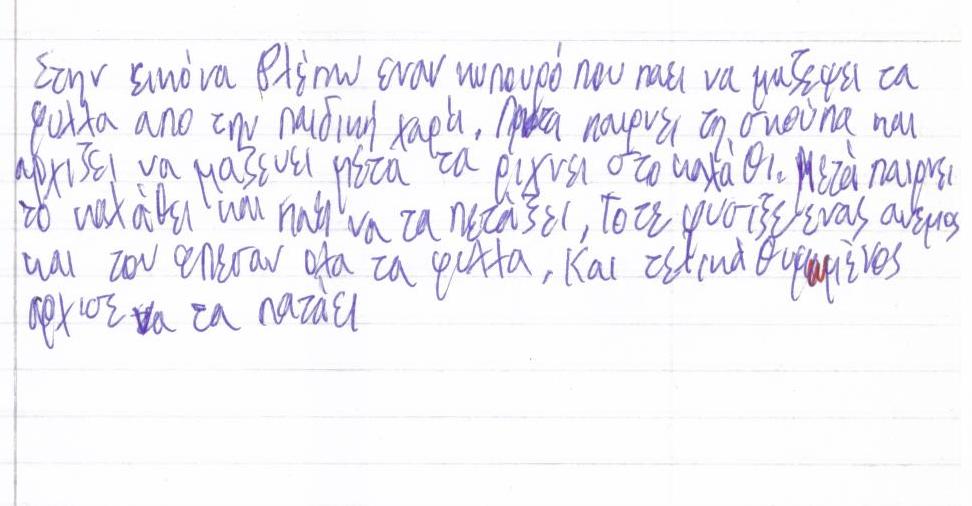 Στην εικόνα βλέπω εναν κυπουρό που παει να μαζεψει τα
φυλλα απο την παιδική χαρά. Πρωτα παιρνει τη σκούπα και
αρχιζει να μαζευει μέτα τα ρίχνει στο καλάθι. Μετά παιρνει
το καλάθει και παει να τα πετάξει, Τοτε φυσιξε ενας ανεμος
και του επεσαν ολα τα φυλλα, Και τελικά θυμωμένος
αρχισε να τα πατάει